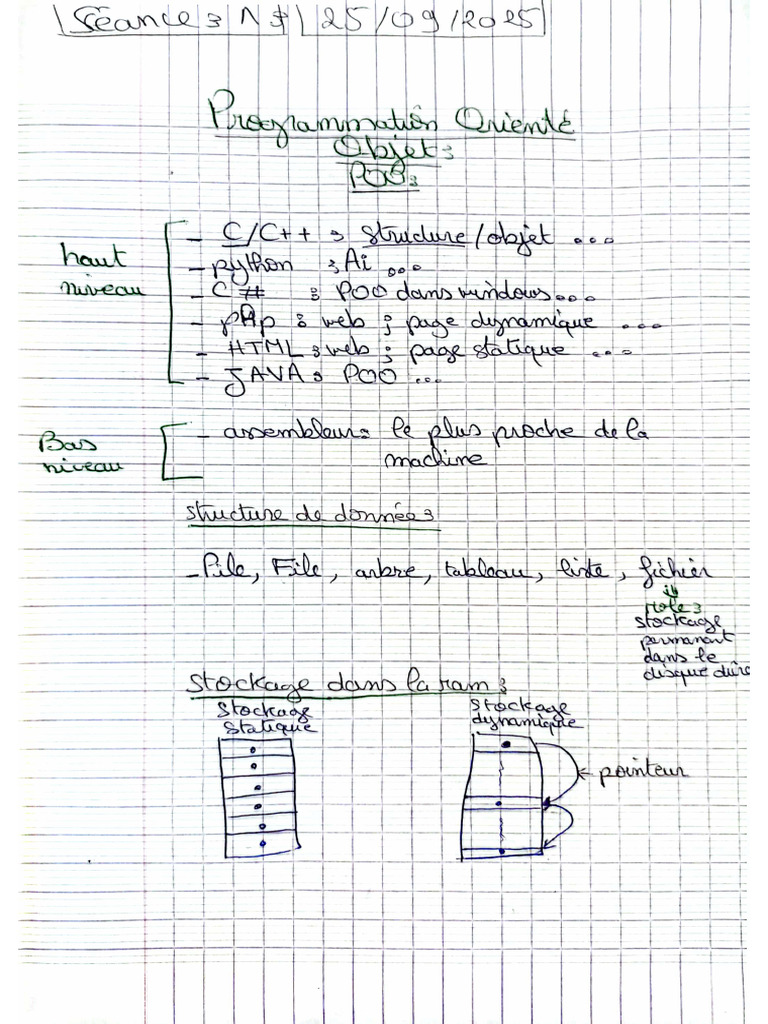 Séance : N°1 25/09/2025
Programmation Orienté
Objet :
POO :
haut
niveau
- C/C++ : structure/objet ...
- python : Ai ...
- C# : POO dans windows ...
- pHp : web ; page dynamique ...
- HTML : web ; page statique ...
- JAVA : POO ...
Bas
niveau
- assembleur : le plus proche de la
machine
structure de donnée :
- Pile, File, arbre, tableau, liste, fichier
role :
stockage
permanant
dans le
disque dûre
stockage dans la ram :
stockage
statique
stockage
dynamique
pointeur